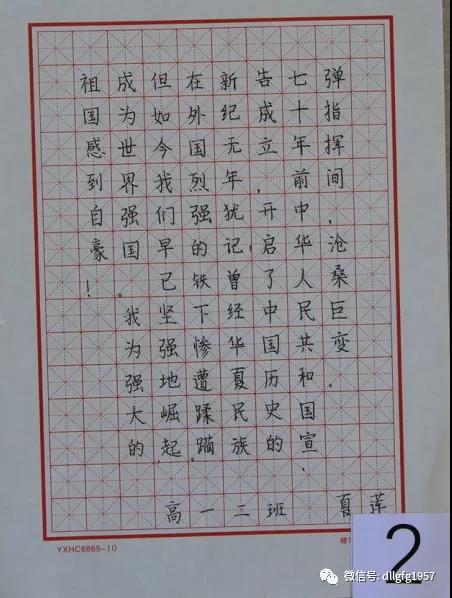 弹指挥间,沧桑巨变。
七十年前中华人民共和国宣
告成立,开启了中国历史的
新纪无年犹记,曾经华夏民族
在外国烈强的铁下惨遭蹂躏。
但如今我们早已坚强地崛起,
成为世界强国。我为强大的
祖国感到自豪!
高一二班 夏莲
YXHC6865-10
2
微信号: dllgfg1957